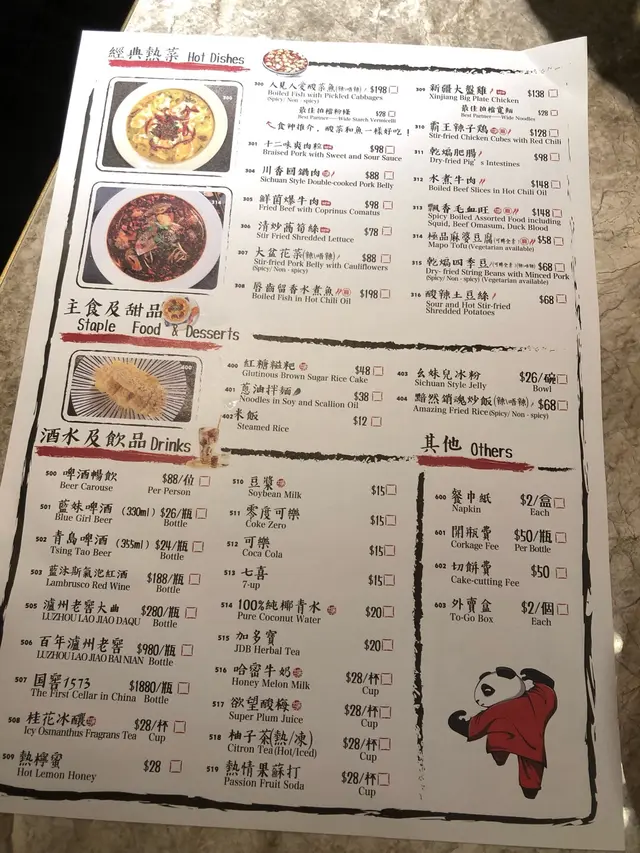 經典熱菜 Hot Dishes
300
300 人見人愛酸菜魚(辣/唔辣) $198
Boiled Fish with Pickled Cabbages
(Spicy/ Non - spicy)
最佳拍檔粉條 $28
Best Partner——Wide Starch Vermicelli
食神推介，酸菜和魚一樣好吃！
301 十二味爽肉粒 $98
Braised Pork with Sweet and Sour Sauce
304 川香回鍋肉 $88
Sichuan Style Double-cooked Pork Belly
305 鮮菌爆牛肉 $98
Fried Beef with Coprinus Comatus
306 清炒萵筍絲 $78
Stir Fried Shredded Lettuce
307 大盆花菜(辣/唔辣) $88
Stir-fried Pork Belly with Cauliflowers
(Spicy/ Non - spicy)
308 唇齒留香水煮魚 $198
Boiled Fish in Hot Chili Oil
309 新疆大盤雞 $138
Xinjiang Big Plate Chicken
最佳拍檔寬麵 $28
Best Partner——Wide Noodles
310 霸王辣子鷄 $128
Stir-fried Chicken Cubes with Red Chili
311 乾煸肥腸 $98
Dry-fried Pig's Intestines
312 水煮牛肉 $148
Boiled Beef Slices in Hot Chili Oil
313 飄香毛血旺 $148
Spicy Boiled Assorted Food including
Squid, Beef Omasum, Duck Blood
314 極品麻婆豆腐 $58
Mapo Tofu (Vegetarian available)
315 乾煸四季豆 $68
Dry- fried String Beans with Minced Pork
(Spicy/ Non - spicy) (Vegetarian available)
316 酸辣土豆絲 $68
Sour and Hot Stir-fried
Shredded Potatoes
314
主食及甜品
Staple Food & Desserts
400
400 紅糖糍粑 $48
Glutinous Brown Sugar Rice Cake
401 蔥油拌麵 $38
Noodles in Soy and Scallion Oil
402 米飯 $12
Steamed Rice
403 幺妹兒冰粉 $26/碗
Sichuan Style Jelly Bowl
404 黯然銷魂炒飯(辣/唔辣) $68
Amazing Fried Rice (Spicy/ Non - spicy)
酒水及飲品 Drinks
500 啤酒暢飲 $88/位
Beer Carouse Per Person
501 藍妹啤酒 (330ml) $26/瓶
Blue Girl Beer Bottle
502 青島啤酒 (355ml) $24/瓶
Tsing Tao Beer Bottle
503 藍泳斯氣泡紅酒 $188/瓶
Lambrusco Red Wine Bottle
505 瀘州老窖大曲 $280/瓶
LUZHOU LAO JIAO DAQU Bottle
506 百年瀘州老窖 $980/瓶
LUZHOU LAO JIAO BAI NIAN Bottle
507 国窖1573 $1880/瓶
The First Cellar in China Bottle
508 桂花冰釀 $28/杯
Icy Osmanthus Fragrans Tea Cup
509 熱檸蜜 $28
Hot Lemon Honey
510 豆漿 $15
Soybean Milk
511 零度可樂 $15
Coke Zero
512 可樂 $15
Coca Cola
513 七喜 $15
7-up
514 100%純椰青水 $20
Pure Coconut Water
515 加多寶 $20
JDB Herbal Tea
516 哈密牛奶 $28/杯
Honey Melon Milk Cup
517 欲望酸梅 $28/杯
Super Plum Juice Cup
518 柚子茶(熱/凍) $28/杯
Citron Tea (Hot/Iced) Cup
519 熱情果蘇打 $28/杯
Passion Fruit Soda Cup
其他 Others
600 餐巾紙 $2/盒
Napkin Each
601 開瓶費 $50/瓶
Corkage Fee Per Bottle
602 切餅費 $50
Cake-cutting Fee
603 外賣盒 $2/個
To-Go Box Each